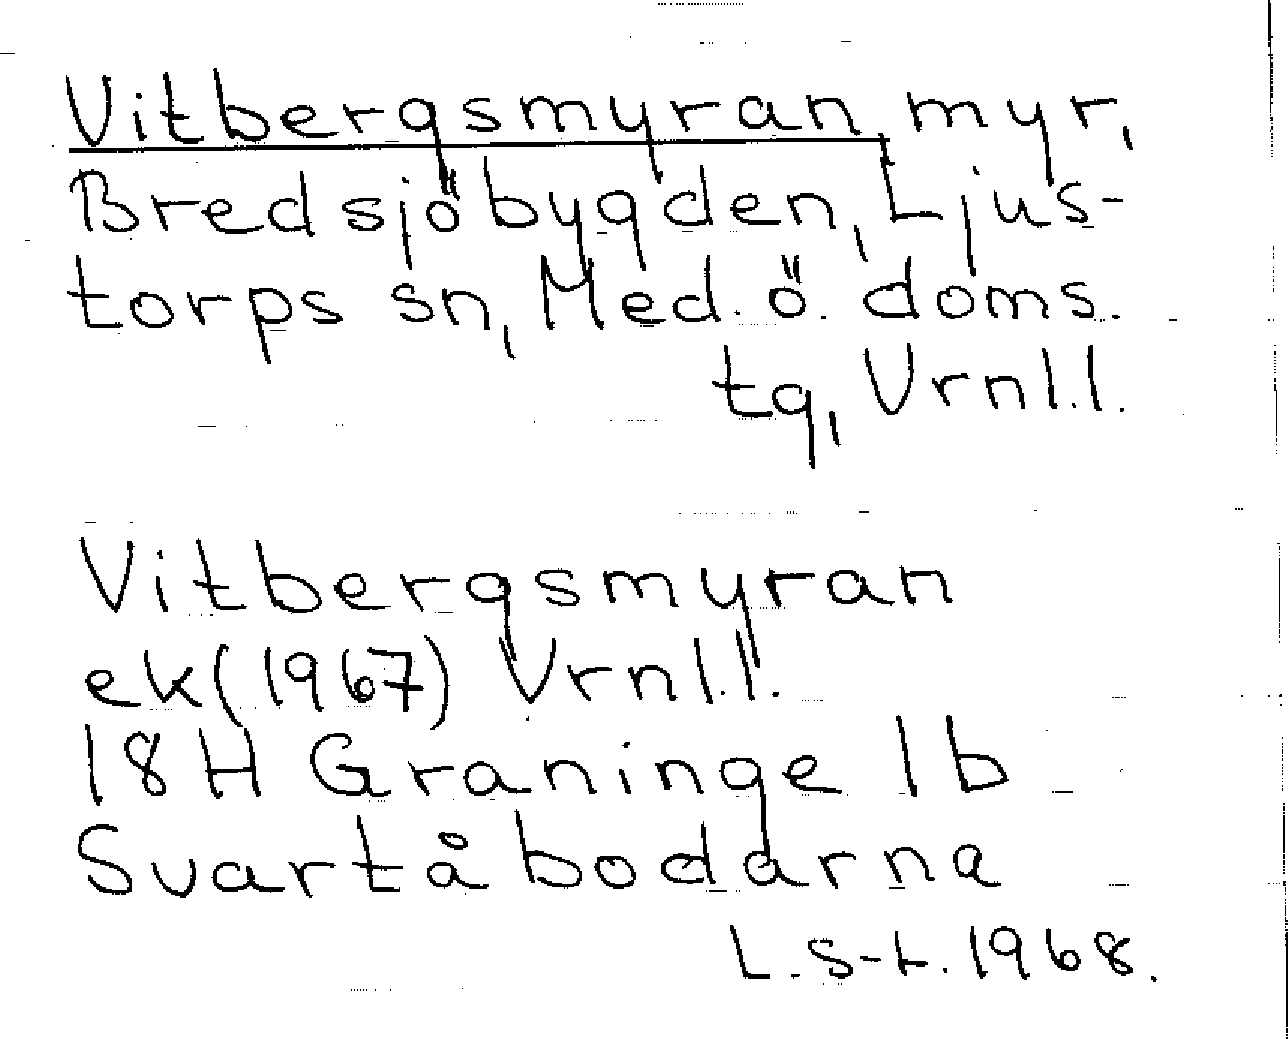 Vitbergsmyran, myr,
Bredsjöbygden, Ljus-
torps sn, Med. ö. doms.
tg, Vrnl.l.
Vitbergsmyran
ek (1967) Vrnl.l.
18H Graninge 1b
Svartåbodarna
L. S-t. 1968.